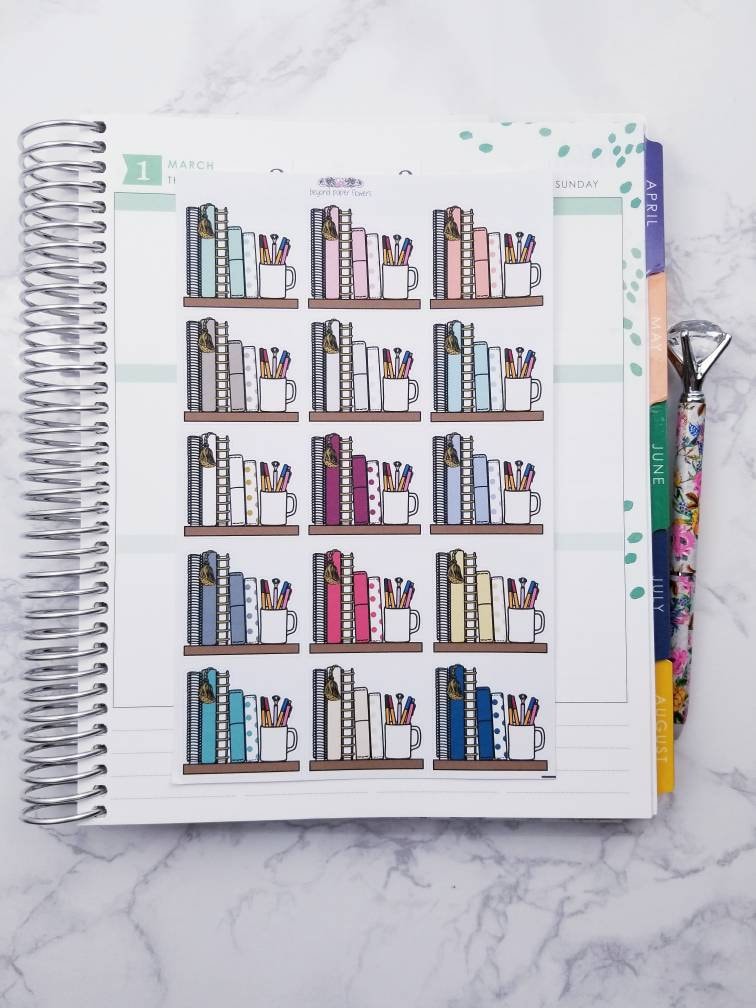 1 MARCH
TH
SUNDAY
beyond paper flowers
APRIL
MAY
JUNE
JULY
AUGUST